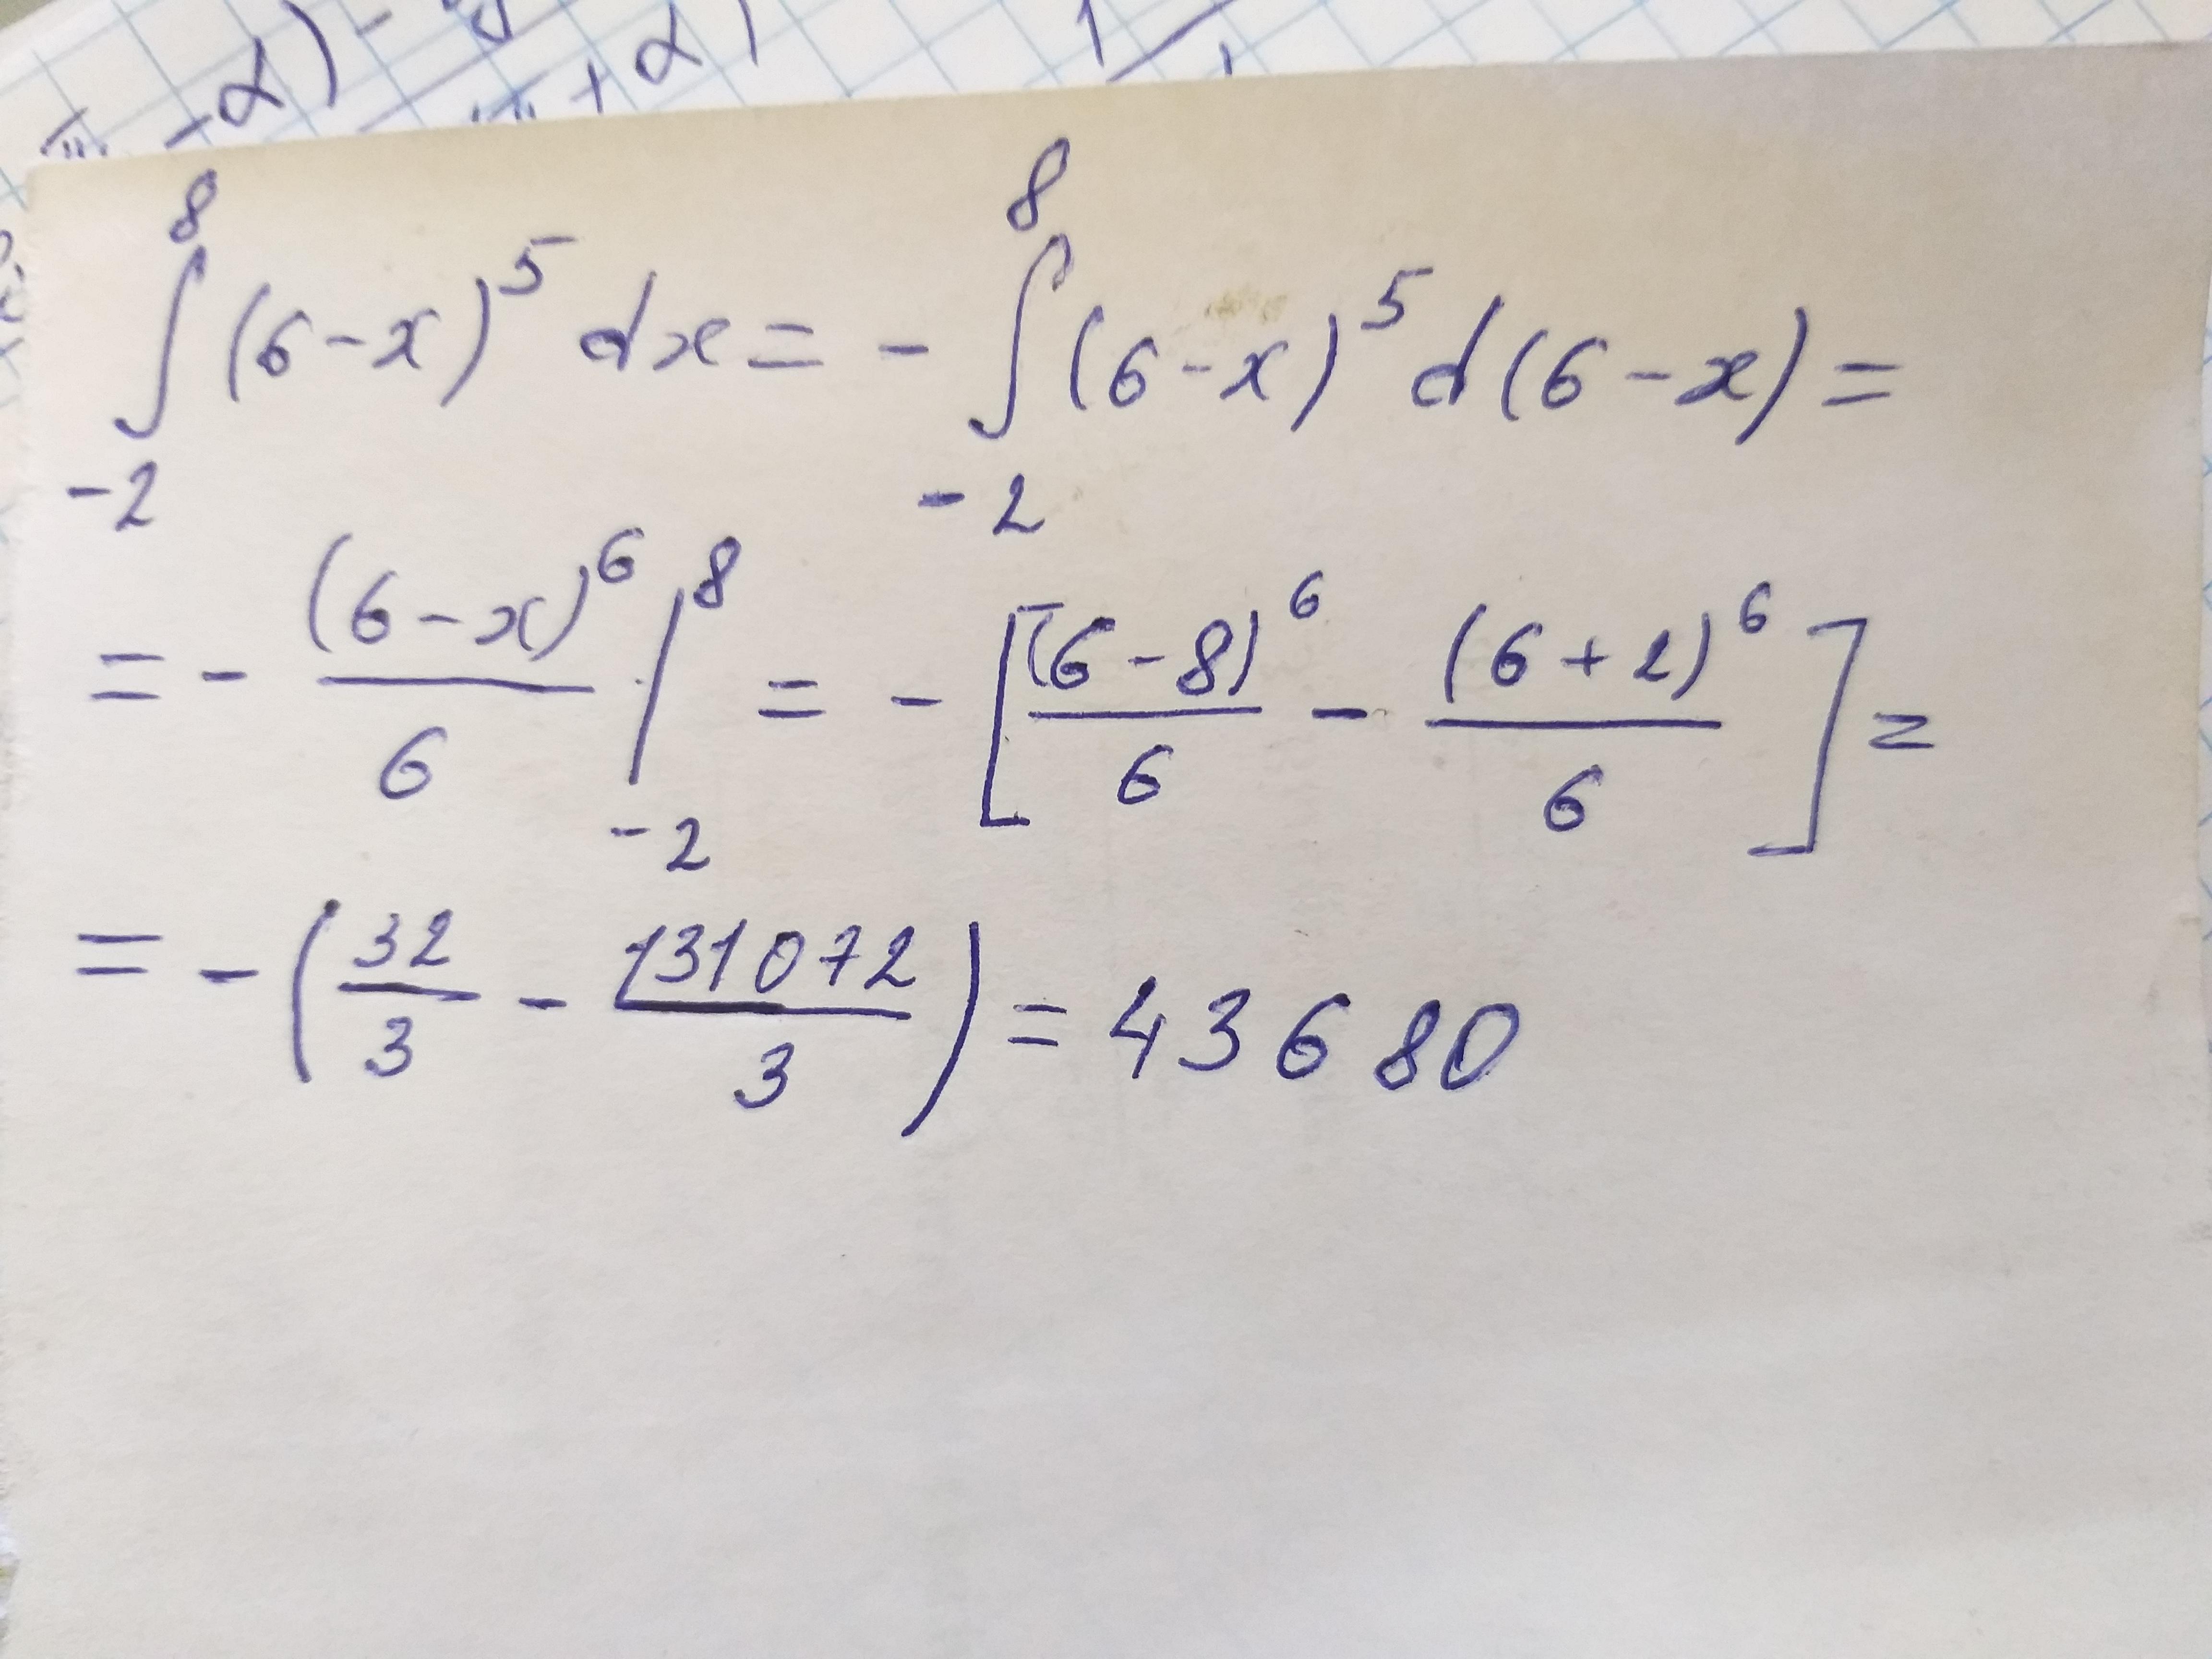 -α) -
+ α)
∫_{-2}^{8} (6-x)^5 dx = - ∫_{-2}^{8} (6-x)^5 d(6-x) =
= - \frac{(6-x)^6}{6} |_{-2}^{8} = - [\frac{(6-8)^6}{6} - \frac{(6+2)^6}{6}] =
= - (\frac{32}{3} - \frac{131072}{3}) = 43680